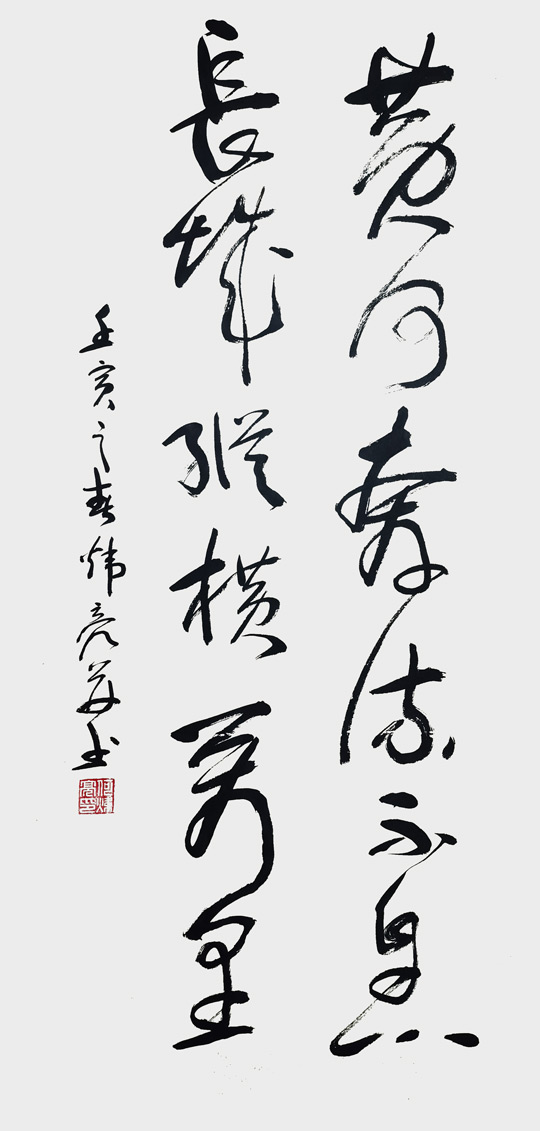 黄河奔流不息
長城縱橫萬里
壬寅之春煒亮並书